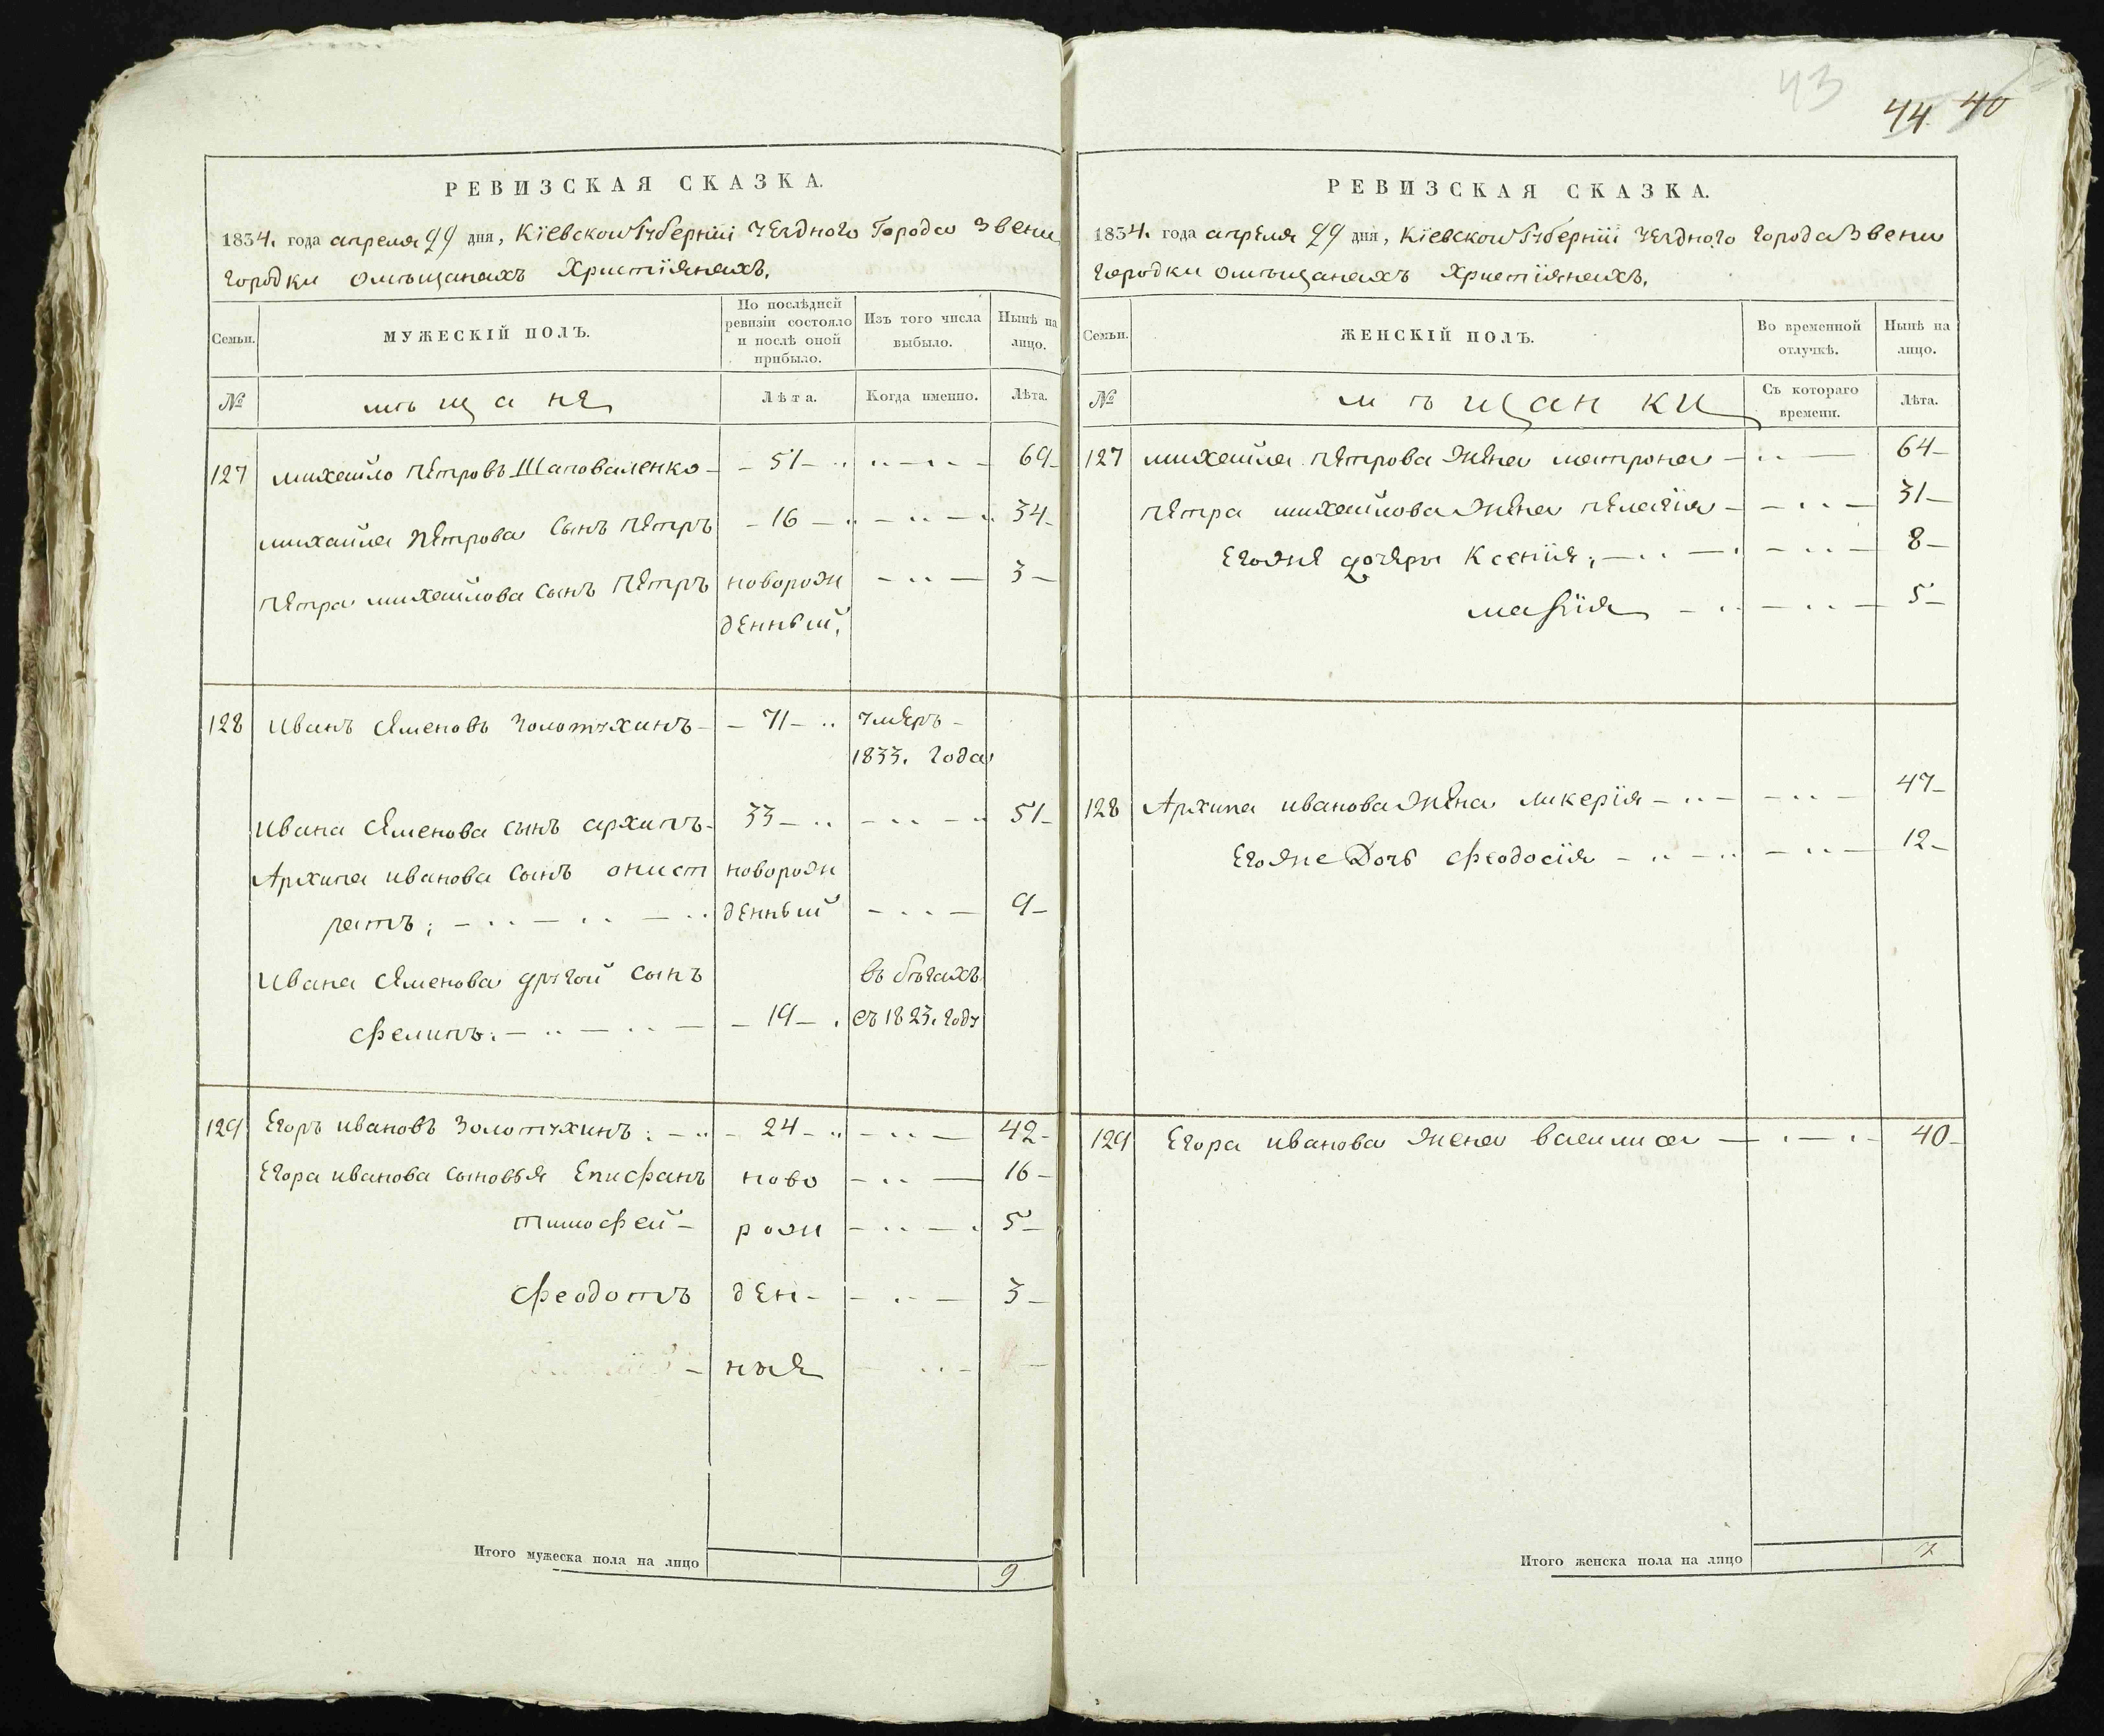 43
44 40
РЕВИЗСКАЯ СКАЗКА.
1834. года апреля 29 дня, Кіевской Губерніи уезднаго Города Звени
городки омѣщанахъ Христіянахъ.
Семьи.
МУЖЕСКІЙ ПОЛЪ.
По послѣдней ревизіи состояло и послѣ оной прибыло.
Изъ того числа выбыло.
Нынѣ на лицо.
№
мѣщане
Лѣта.
Когда именно.
Лѣта.
127 михайло петровъ Шаповаленко 51 69
михайла петрова сынъ петръ 16 34
петра михайлова сынъ петръ новорож 3
денный,
128 иванъ семеновъ золотухинъ 71 умеръ
1833. года
ивана семенова сынъ архипъ 33 51
Архипа иванова сынъ онист новорож
ратъ; денный 9
ивана семенова другой сынъ въ бѣгахъ
филипъ. 19 съ 1823. году
129 Егоръ ивановъ Золотухинъ: 24 42
Егора иванова сыновья Епифанъ ново 16
тимофей рож 5
феодотъ ден- 3
ныя
Итого мужеска пола на лицо 9
РЕВИЗСКАЯ СКАЗКА.
1834. года апреля 29 дня, Кіевской Губерніи уезднаго города Звени
городки омѣщанахъ Христіянахъ.
Семьи.
ЖЕНСКІЙ ПОЛЪ.
Во временной отлучкѣ.
Нынѣ на лицо.
№
мѣщанки
Съ котораго времени.
Лѣта.
127 михайла петрова жена матрона 64
петра михайлова жена пелагія 31
Егожя дочери Ксенія, 8
марія 5
128 Архипа иванова жена ликерія 47
Егоже Дочь феодосія 12
129 Егора иванова жена василиса 40
Итого женска пола на лицо 7